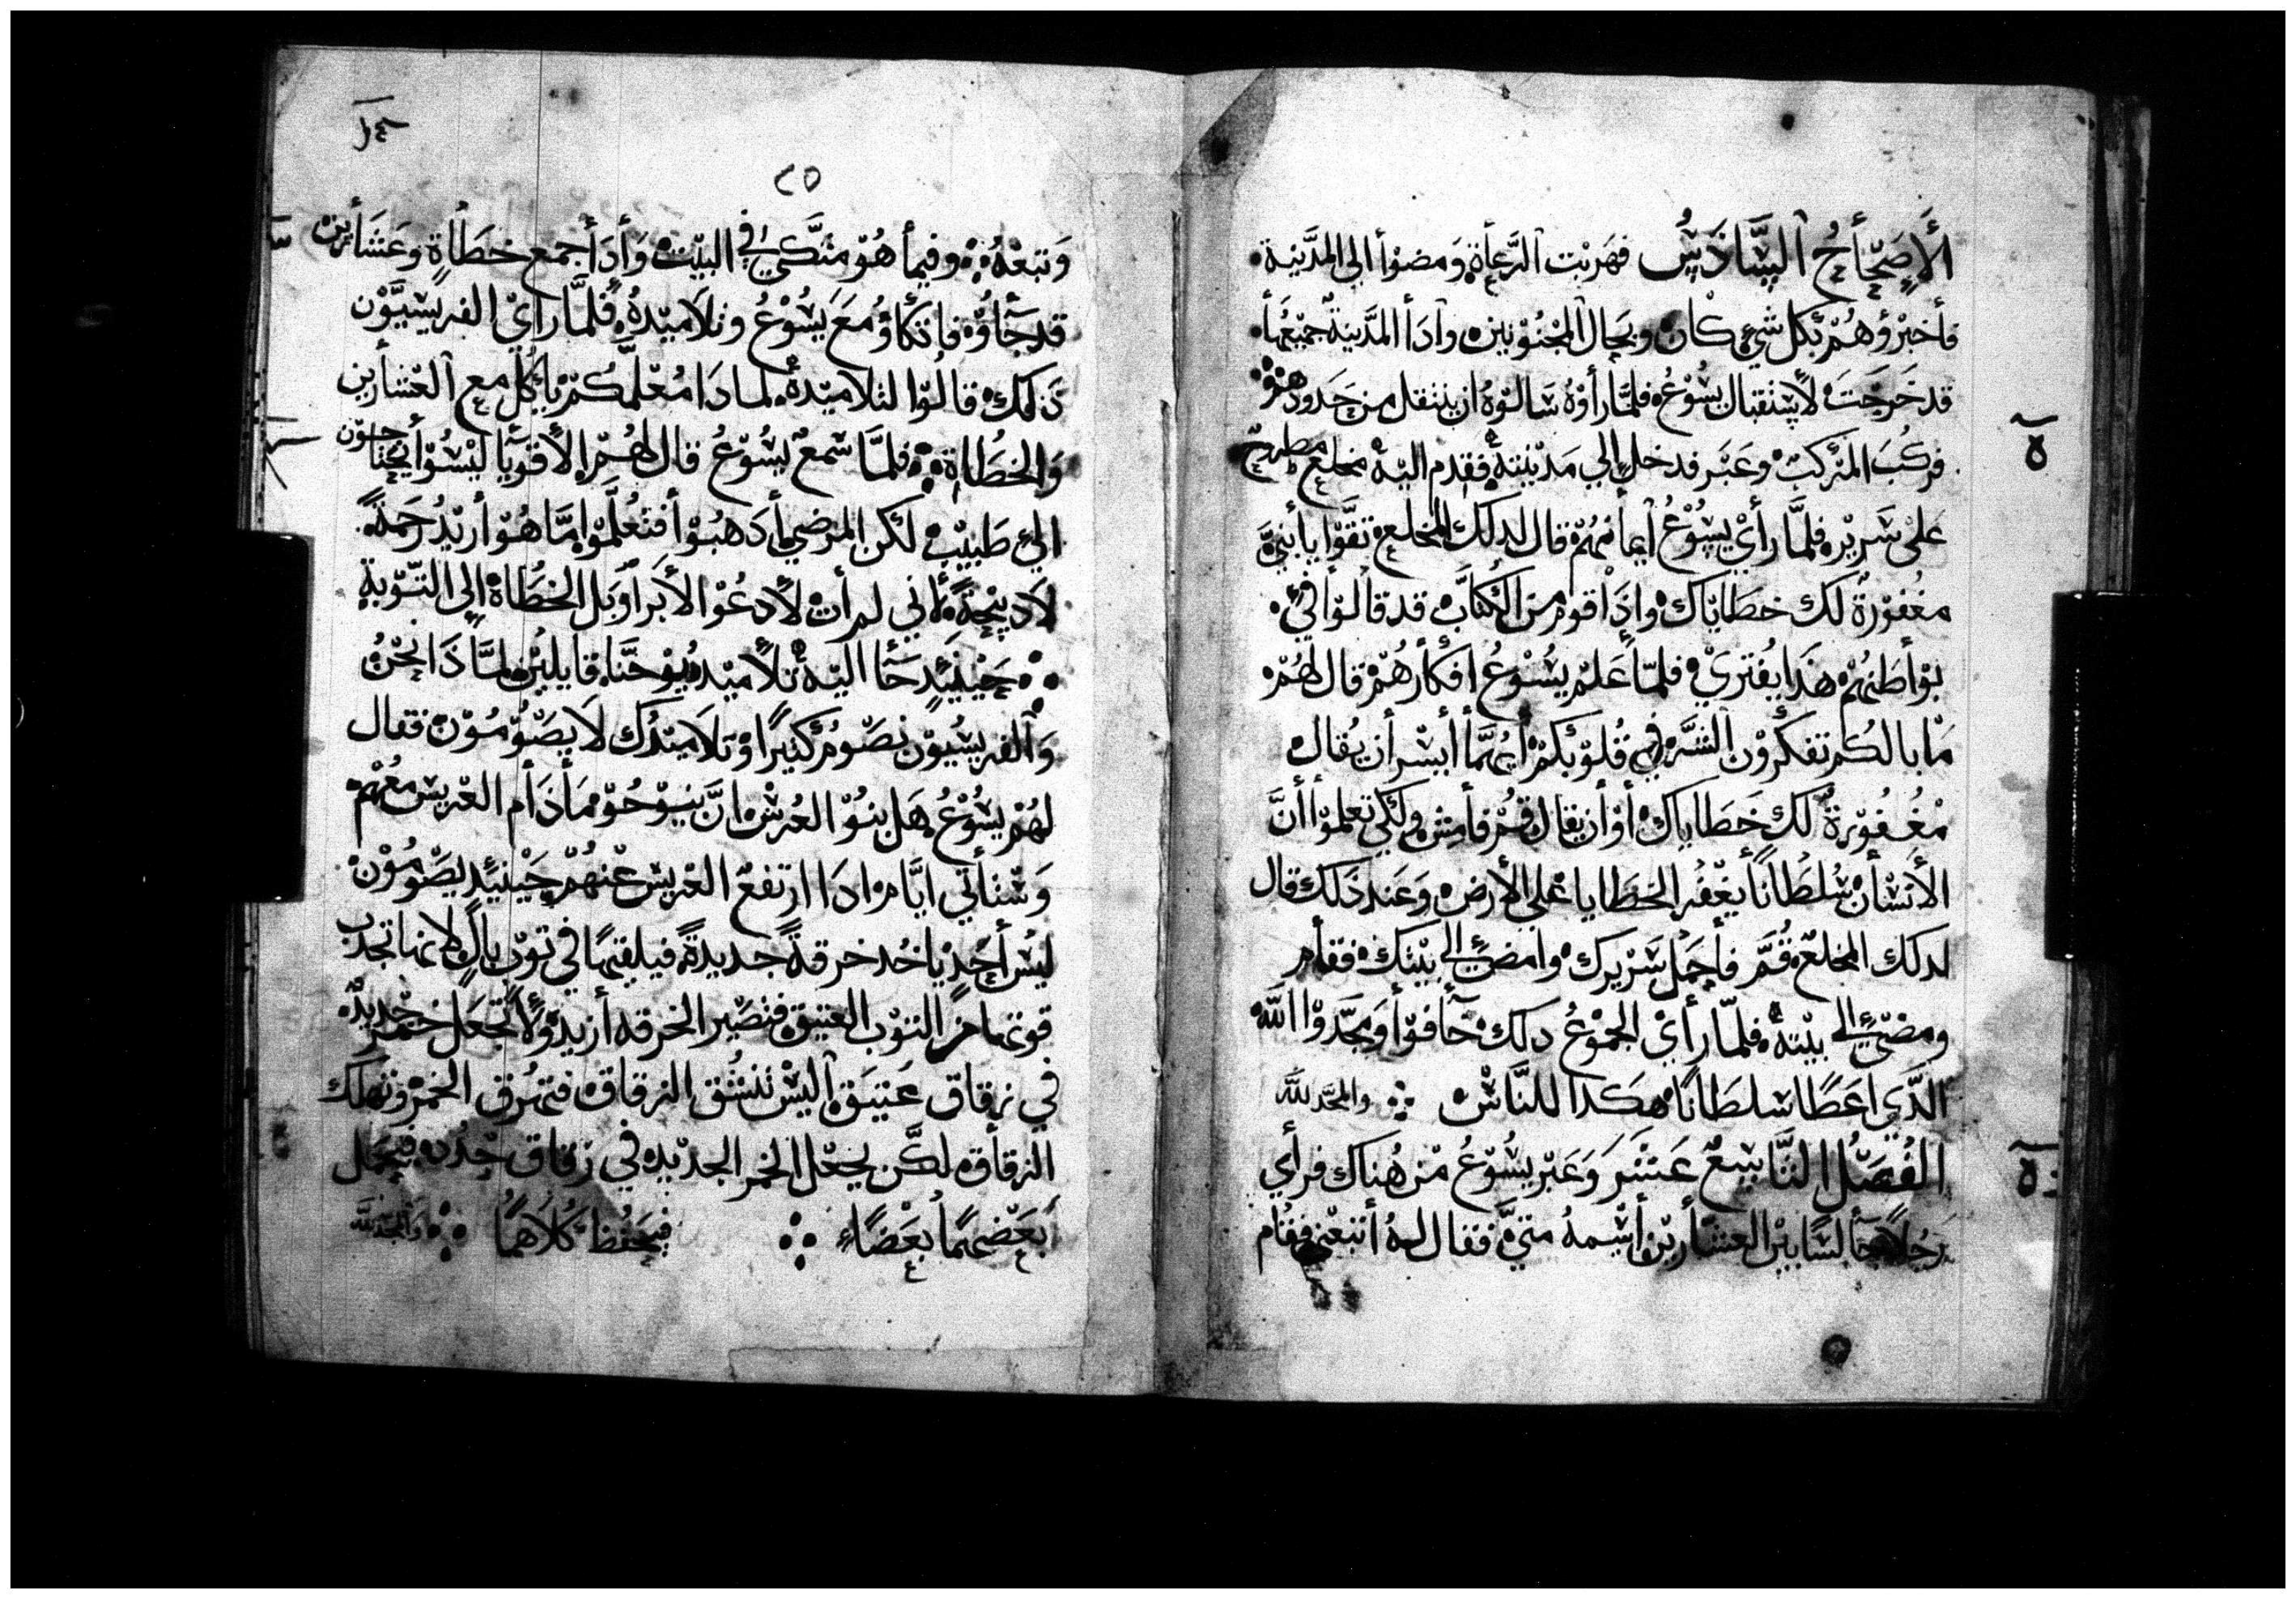 الأصحاح السادس فهربت الرعاة ومضوا الى المدينة
فأخبروهم بكل شي كان وبحال المجنونين وادا المدينة جميعها
قد خرجت لاستقبال يسوع فلما رأوه سالوه ان ينتقل من حدودهم
فركب المركب وعبر فدخل الي مدينته فقدم اليه مخلع مطروح
على سرير فلما رأي يسوع أيمانهم قال لدلك المخلع تقوا يا أبني
مغفورة لك خطاياك وإذا قوم من الكتاب قد قالوا في
بواطنهم هذا يفتري فلما علم يسوع افكارهم قال لهم
ما بالكم تفكرون الشر في قلوبكم أيما أيسر أن يقال
مغفورة لك خطاياك أو أن يقال قم فأمش ولكي تعلموا أن
الأنسان سلطانا يغفر الخطايا على الأرض وعند ذلك قال
لدلك المخلع قم فأحمل سريرك وأمضي الى بيتك فقام
ومضى الى بيته فلما رأي الجموع دلك خافوا ومجدوا الله
الدي اعطا سلطانا هكدا للناس والمجد لله
الفصل التاسع عشر وعبر يسوع من هناك فرأي
رجلا جالسا بين العشارين أسمه متي فقال له أتبعني فقام
٢٥
وتبعه وفيما هو متكي في البيت وأدا أجمع خطاة وعشارين
قد جاوه فاتكاو مع يسوع وتلاميده فلما راي الفريسيون
ذلك قالوا لتلاميده لمادا معلمكم ياكل مع العشارين
والخطاة فلما سمع يسوع قال لهم الأقويا ليسوا يحتاجون
الى طبيب لكن المرضي أدهبوا فتعلموا ما هو أريد رحمة
لا ديبحة لأني لم أت لأدعوا الأبرار بل الخطاة إلى التوبة
حينيد جا اليه تلاميد يوحنا قايلين لماذا نحن
والفريسيون نصوم كثيرا وتلاميدك لا يصومون فقال
لهم يسوع هل بنو العرس ان ينوحو مادام العريس معهم
وستاتي ايام ادا ارتفع العريس عنهم حينيد يصومون
ليس أحد ياخد خرقة جديدة فيلقيها في توب بال لانها تجدب
قوتها من التوب العتيق فتصير الخرقه أزيد ولا تجعل خمر جديد
في زقاق عتيق أليس تنشق الزقاق فتهرق الخمر وتهلك
الزقاق لكن يجعل الخمر الجديد في زقاق جدد فيحمل
بعضهما بعضا فيحفظ كلاهما والمجد لله